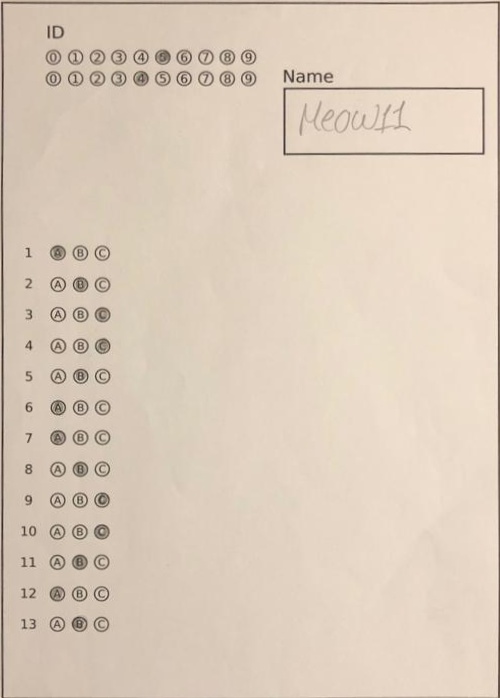 ID
0 1 2 3 4 5 6 7 8 9
0 1 2 3 4 5 6 7 8 9
Name
Meow11
1 A B C
2 A B C
3 A B C
4 A B C
5 A B C
6 A B C
7 A B C
8 A B C
9 A B C
10 A B C
11 A B C
12 A B C
13 A B C